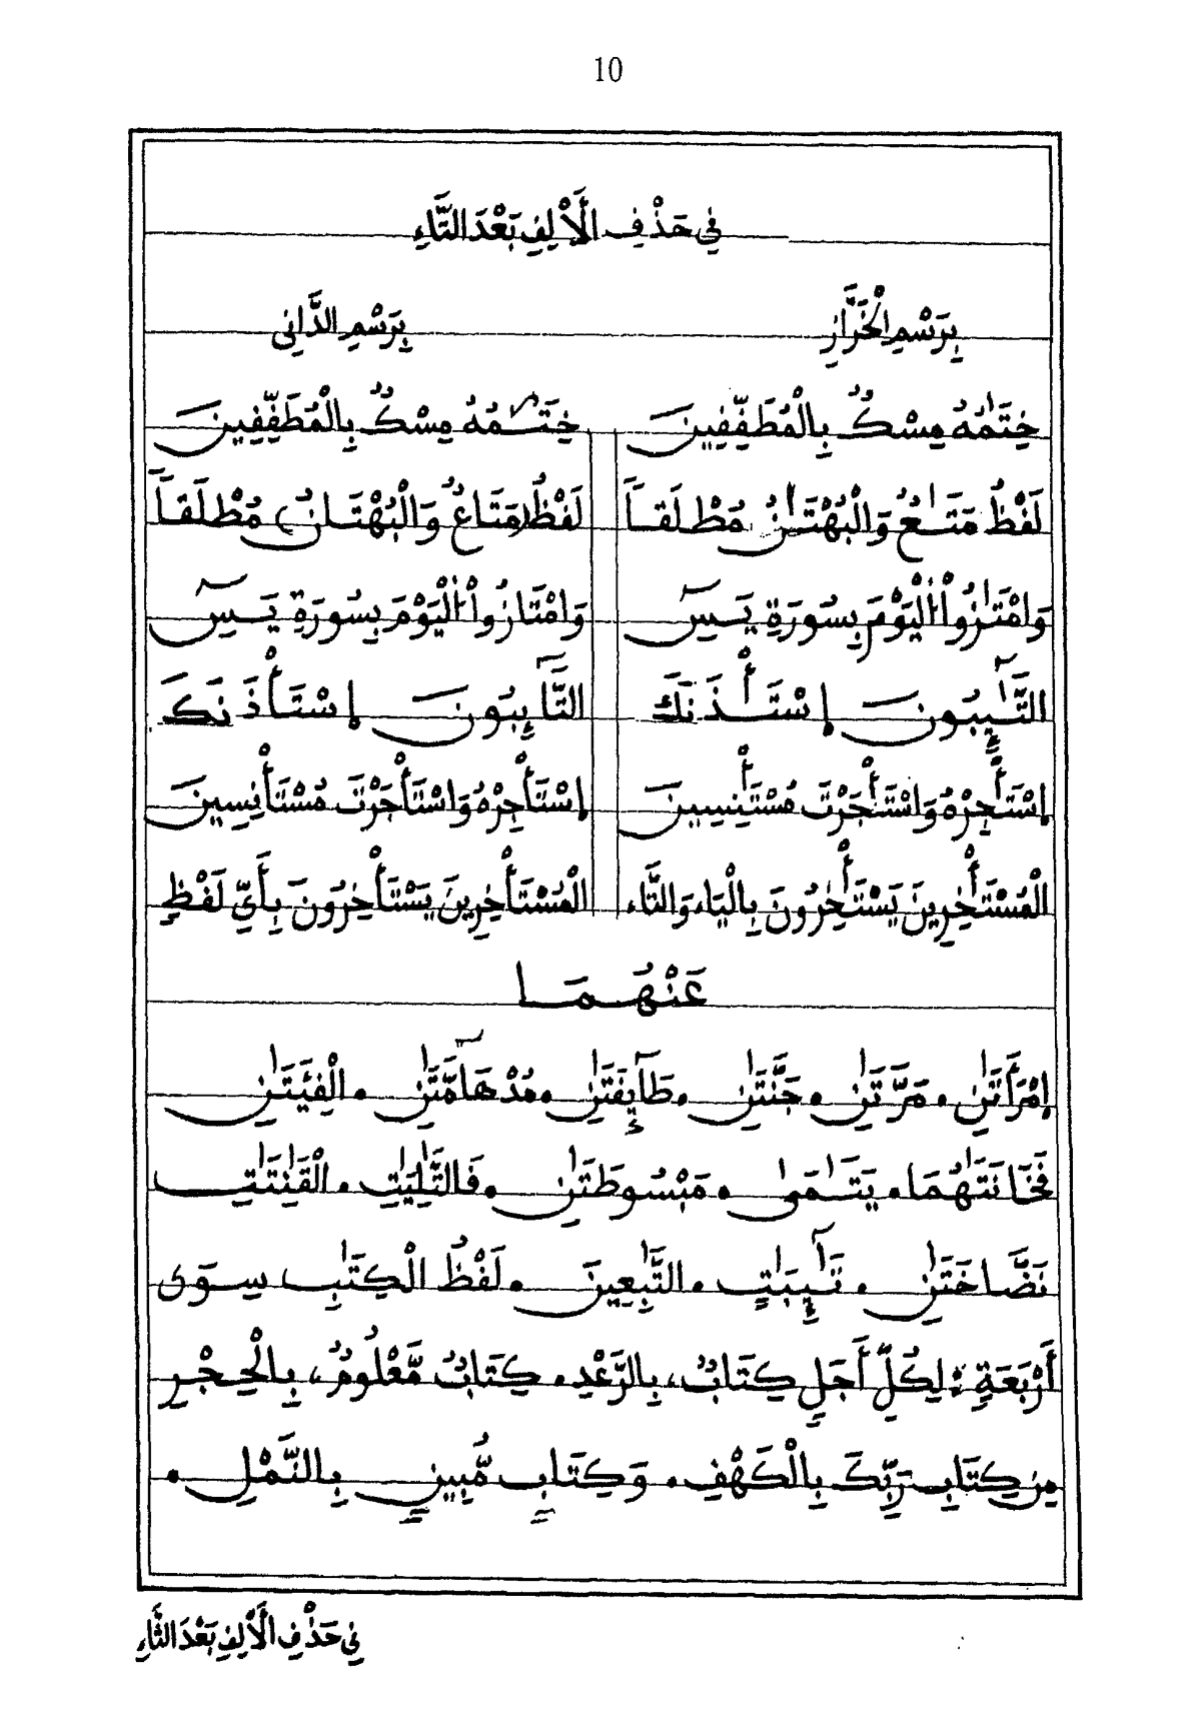 10
في حَذْفِ الْأَلِفِ بَعْدَ التَّاءِ
بِرَسْمِ الْخَرَّازِ بِرَسْمِ الدَّانِي
خِتَٰمُهُ مِسْكٌ بِالْمُطَفِّفِينَ خِتَٰمُهُ مِسْكٌ بِالْمُطَفِّفِينَ
لَفْظُ مَتَٰعٌ وَالْبُهْتَٰنُ مُطْلَقاً لَفْظُ مَتَاعٌ وَالْبُهْتَانُ مُطْلَقاً
وَامْتَٰزُواْ الْيَوْمَ بِسُورَةِ يَسِٓ وَامْتَازُواْ الْيَوْمَ بِسُورَةِ يَسِٓ
التَّٰٓئِبُونَ إسْتَٔذَنَكَ التَّآئِبُونَ إسْتَأْذَنَكَ
إسْتَٔجِرْهُ وَاسْتَٔجَرْتَ مُسْتَٔنِسِينَ إسْتَأْجِرْهُ وَاسْتَأْجَرْتَ مُسْتَأْنِسِينَ
الْمُسْتَٔخِرِينَ يَسْتَٔخِرُونَ بِالْيَاءِ وَالتَّاءِ الْمُسْتَأْخِرِينَ يَسْتَأْخِرُونَ بِأَيِّ لَفْظٍ
عَنْهُمَا
إمْرَأَتَٰنِ . مَرَّتَٰنِ . جَنَّتَٰنِ . طَآئِفَتَٰنِ . مُدْهَآمَّتَٰنِ . الْفِئَتَٰنِ
فَخَانَتَٰهُمَا . يَتَٰمَىٰ . مَبْسُوطَتَٰنِ . فَالتَّٰلِيَٰتِ . الْقَٰنِتَٰتِ
نَضَّاخَتَٰنِ . تَٰٓئِبَٰتٍ . التَّٰبِعِينَ . لَفْظُ الْكِتَٰبِ سِوَى
أَرْبَعَةٍ : لِكُلِّ أَجَلٍ كِتَابٌ ، بِالرَّعْدِ . كِتَابٌ مَّعْلُومٌ ، بِالْحِجْرِ
مِن كِتَابِ رَبِّكَ بِالْكَهْفِ . وَكِتَابٍ مُّبِينٍ بِالنَّمْلِ .
في حَذْفِ الْأَلِفِ بَعْدَ الثَّاءِ